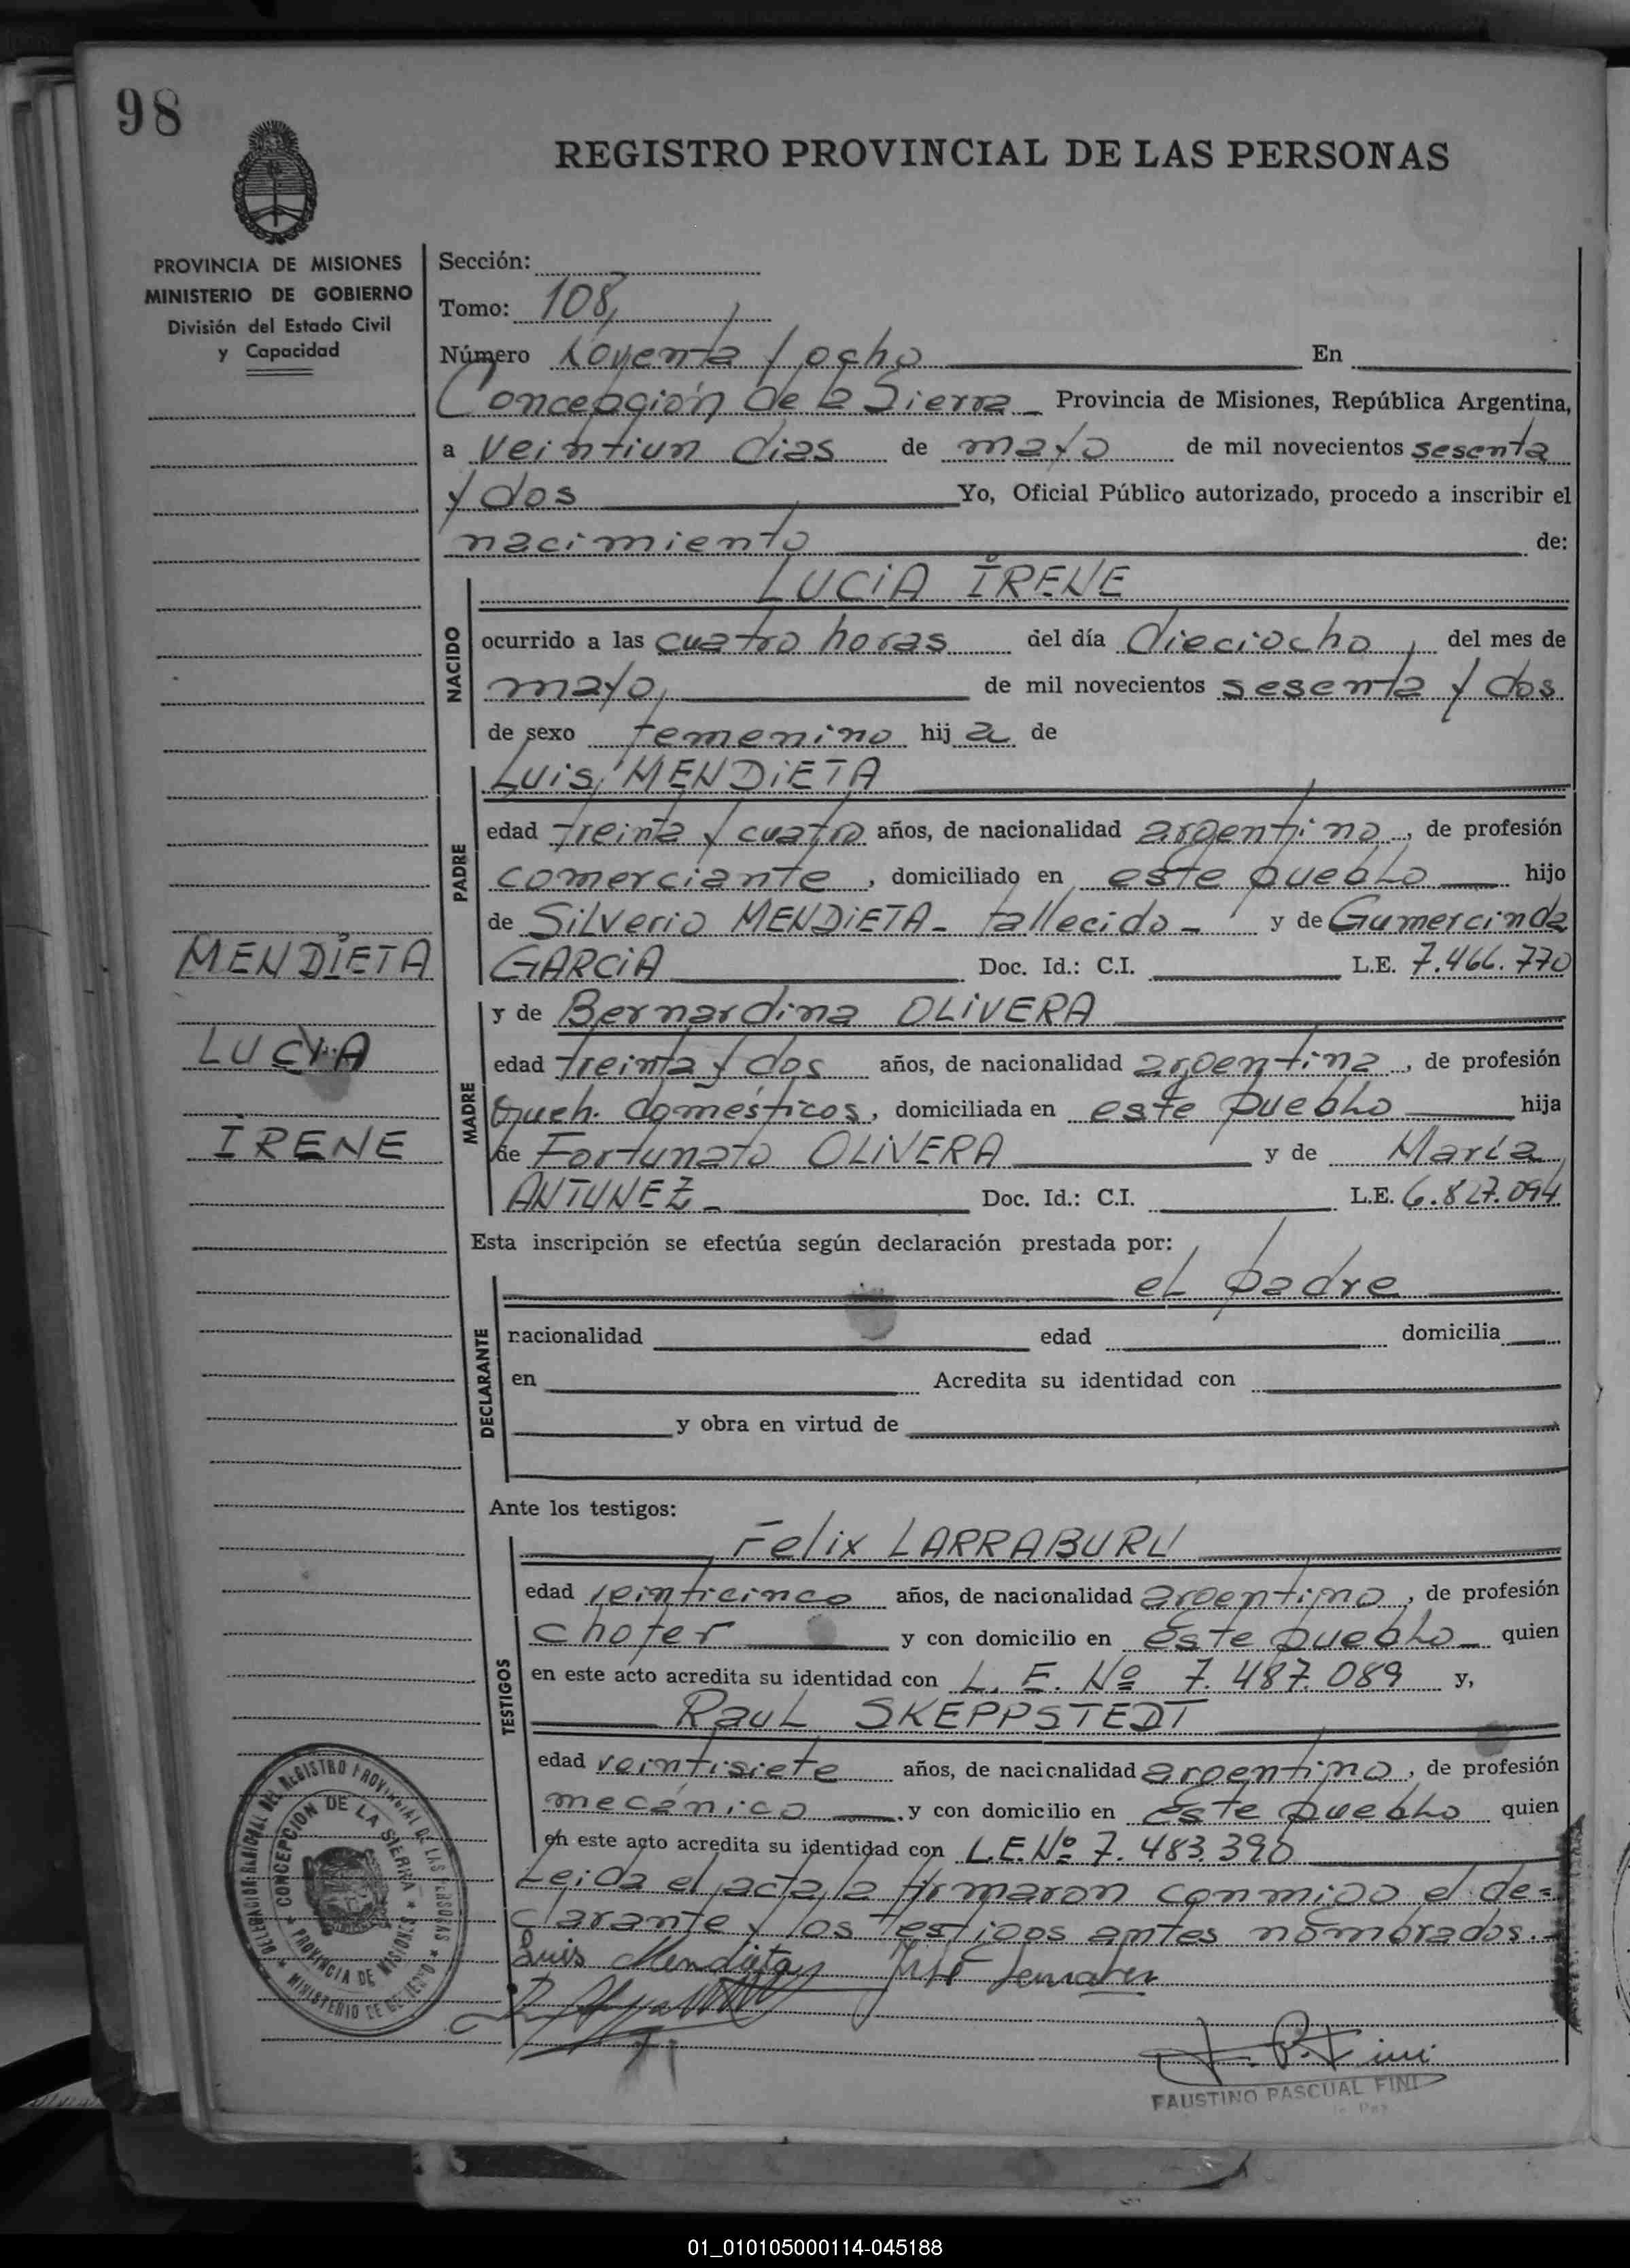 98
REGISTRO PROVINCIAL DE LAS PERSONAS
PROVINCIA DE MISIONES
MINISTERIO DE GOBIERNO
División del Estado Civil
y Capacidad
Sección:
Tomo: 108,
Número Noventa y ocho En
Concepción de la Sierra Provincia de Misiones, República Argentina,
a veintiun dias de mayo de mil novecientos sesenta
y dos Yo, Oficial Público autorizado, procedo a inscribir el
nacimiento de:
NACIDO
LUCIA IRENE
ocurrido a las cuatro horas del día dieciocho, del mes de
mayo, de mil novecientos sesenta y dos
de sexo femenino hij a de
PADRE
Luis MENDIETA
edad treinta y cuatro años, de nacionalidad argentino, de profesión
comerciante, domiciliado en este pueblo hijo
de Silverio MENDIETA - fallecido - y de Gumercinda
GARCIA Doc. Id.: C.I. L.E. 7.466.770
MENDIETA
LUCIA
IRENE
MADRE
y de Bernardina OLIVERA
edad treinta y dos años, de nacionalidad argentina, de profesión
Queh. domésticos, domiciliada en este pueblo hija
de Fortunato OLIVERA y de María
ANTUNEZ - Doc. Id.: C.I. L.E. 6.827.094
Esta inscripción se efectúa según declaración prestada por:
DECLARANTE
el padre
nacionalidad edad domicilia
en Acredita su identidad con
y obra en virtud de
Ante los testigos:
TESTIGOS
Felix LARRABURU
edad veinticinco años, de nacionalidad argentino, de profesión
chofer y con domicilio en este pueblo quien
en este acto acredita su identidad con L. E. Nº 7.487.089 y,
Raul SKEPPSTEDT
edad veintisiete años, de nacionalidad argentino, de profesión
mecánico y con domicilio en este pueblo quien
en este acto acredita su identidad con L.E. Nº 7.483.390
Leida el acta, la firmaron conmigo el de=
clarante y los testigos antes nombrados.-
Luis Mendieta
F. P. Fini
FAUSTINO PASCUAL FINI
DELEGACION REGIONAL DEL REGISTRO PROVINCIAL DE LAS PERSONAS
CONCEPCION DE LA SIERRA
PROVINCIA DE MISIONES
MINISTERIO DE GOBIERNO
01_010105000114-045188